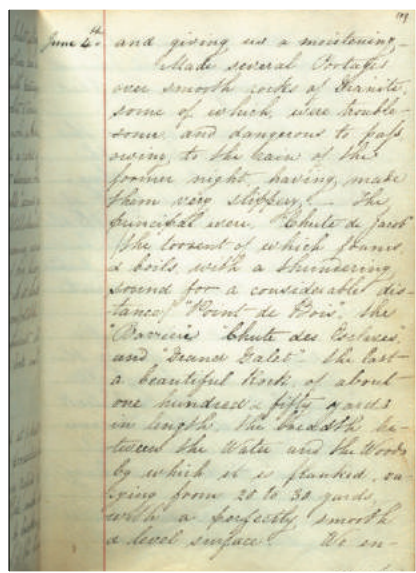 119
June 4th. and giving us a moistening,
Made several Portages
over smooth rocks of Granite,
some of which, were trouble-
some, and dangerous to pass
owing, to the rain of the
former night, having, made
them very slippery. The
principal were, "Chute de Jacob"
(the torrent of which foams
& boils, with a thundering
sound for a considerable dis-
tance) "Point de Bois", the
"Barriere" "Chute des Esclaves"
and "Grand Galet". The last
a beautiful Rock, of about
one hundred & fifty yards
in length, the breadth be-
tween the Water and the Woods
by which it is flanked, va-
rying from 20 to 30 yards,
with a perfectly, smooth
& level surface. We en-